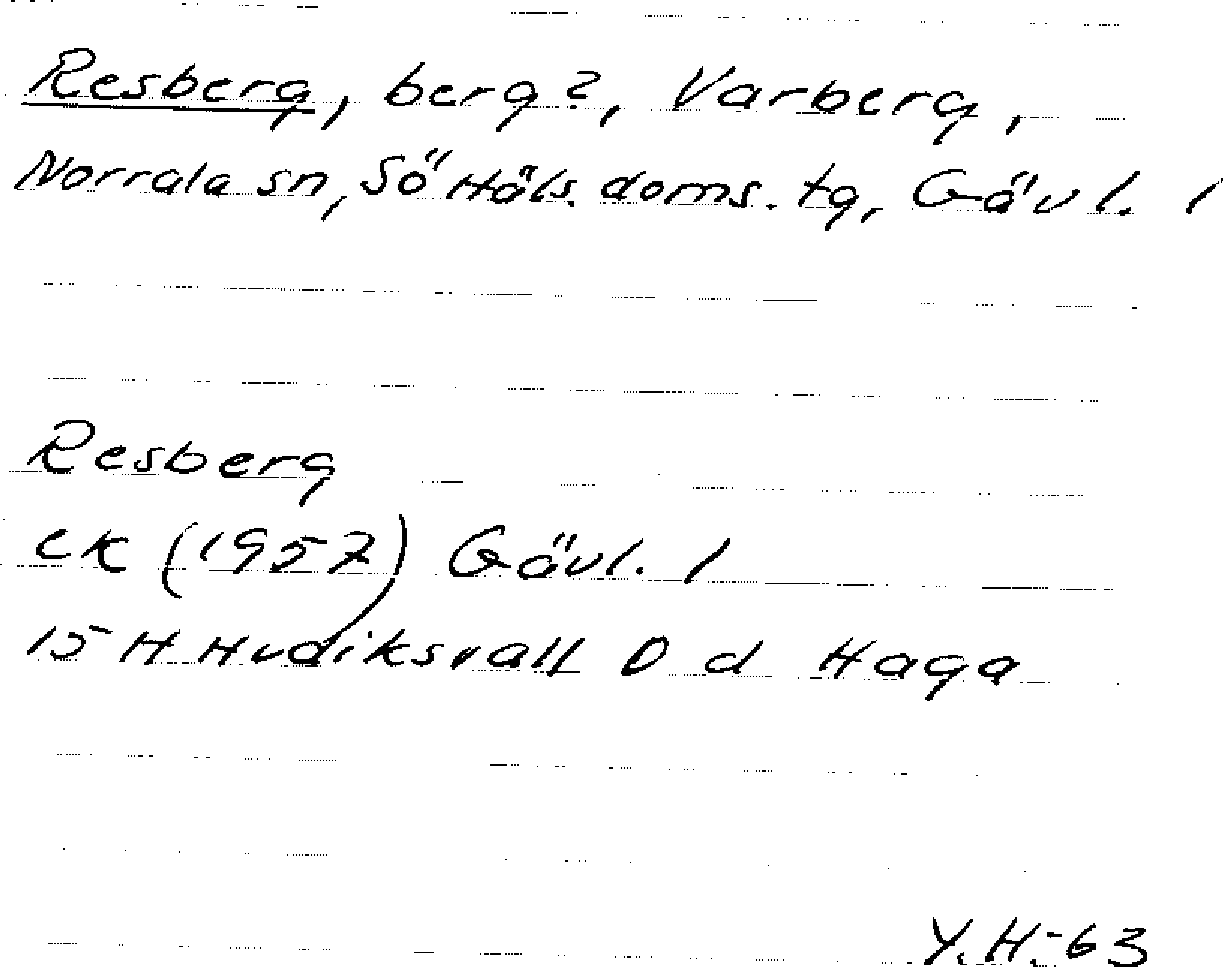 Resberg, berg?, Varberg,
Norrala sn, Sö Häls. doms. tg, Gävl. l
Resberg
EK (1957) Gävl. l
15 H Hudiksvall 0 d Haga
Y.H.-63